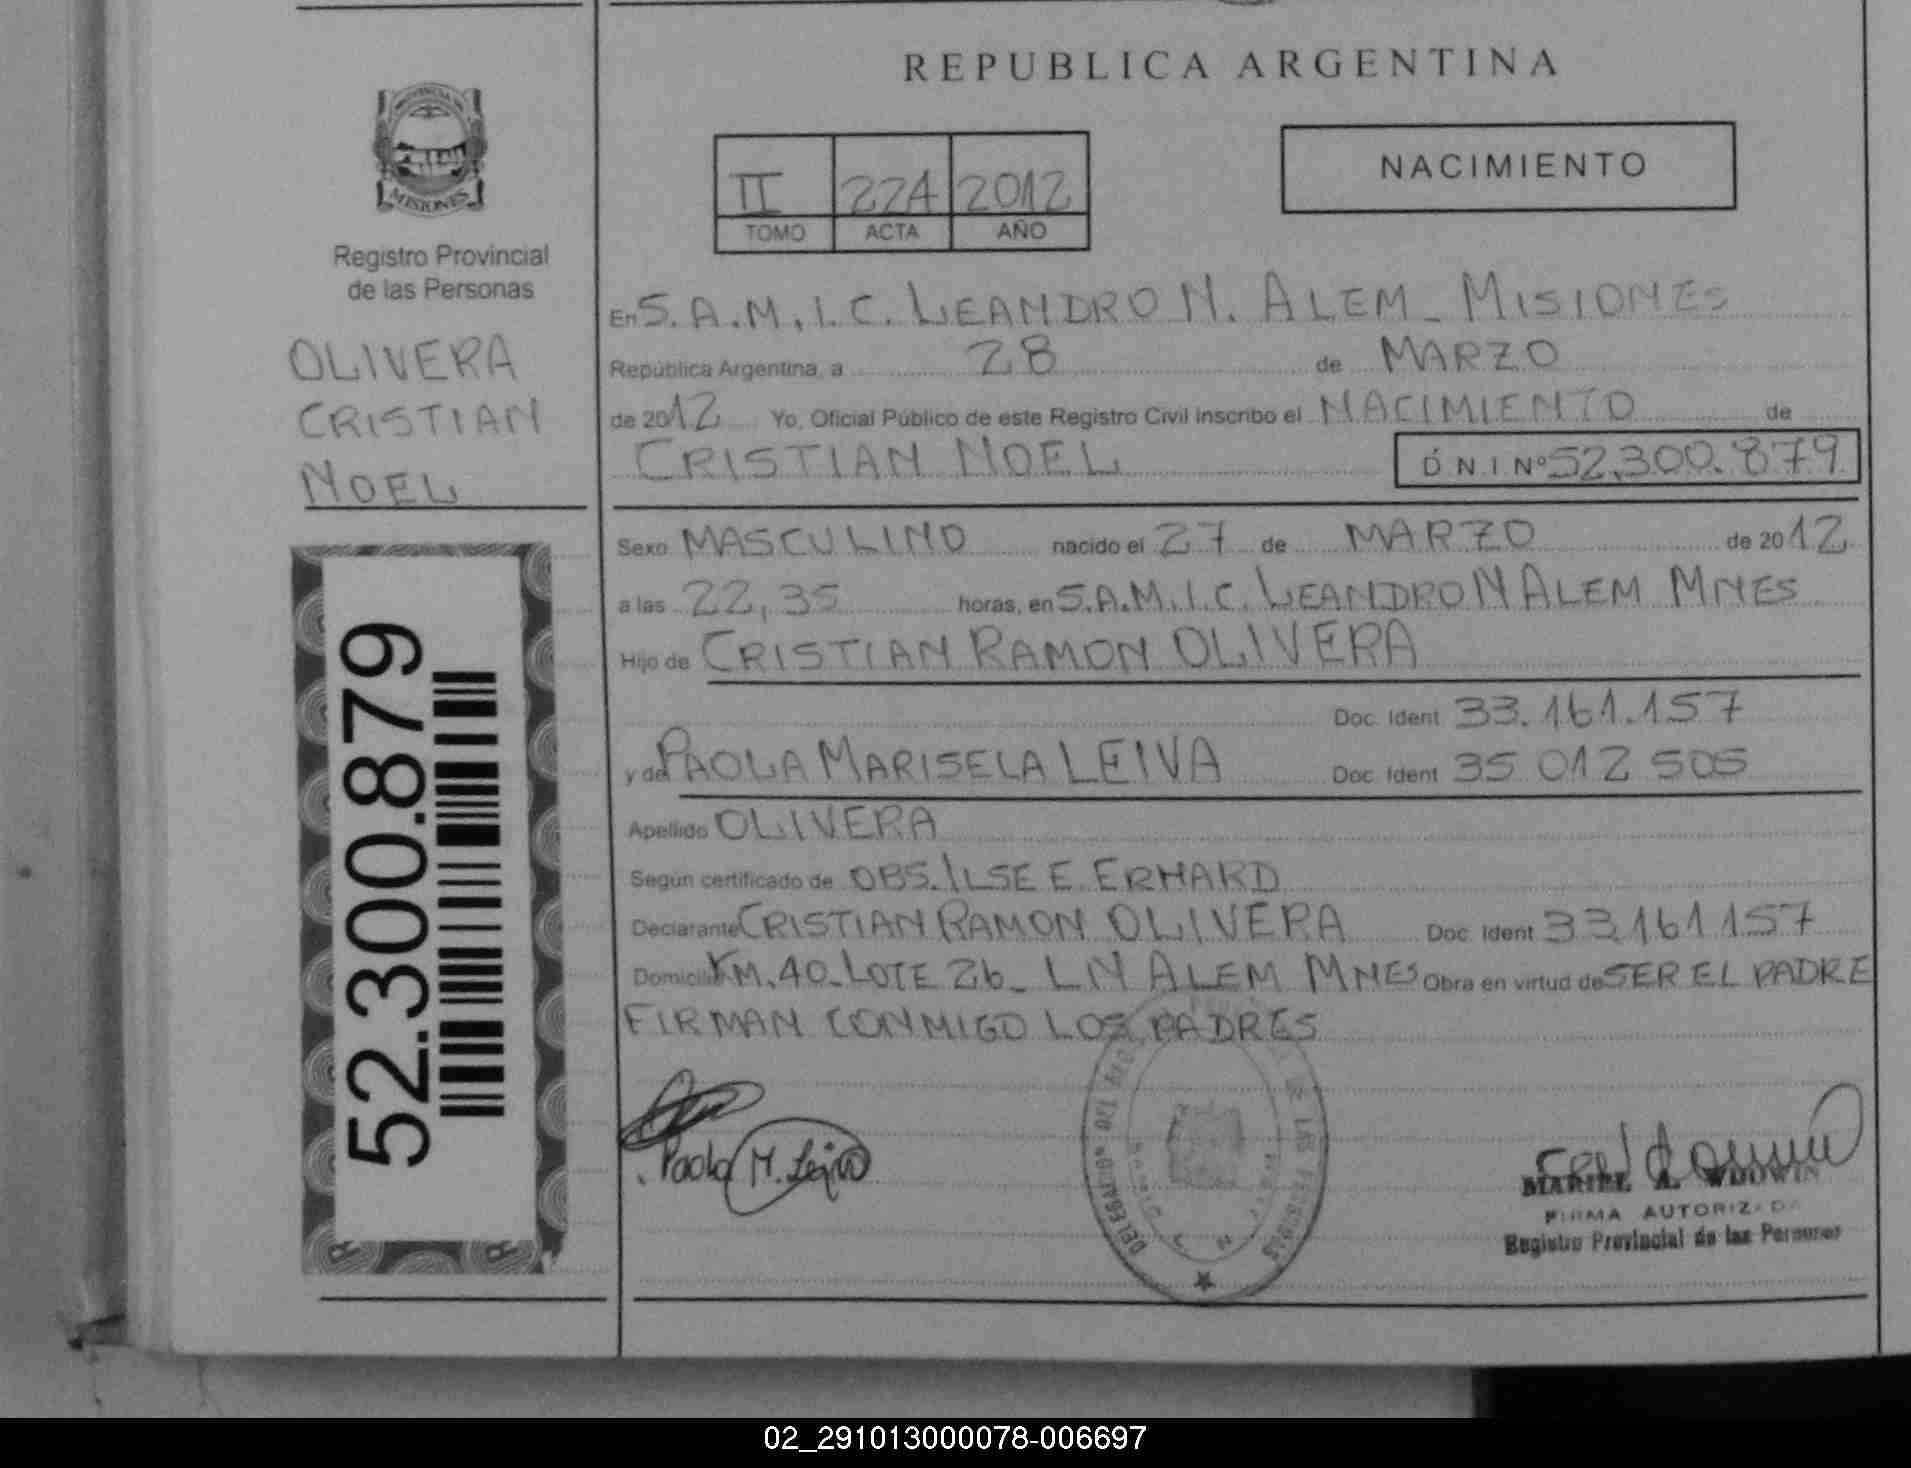 REPUBLICA ARGENTINA
PROVINCIA DE
MISIONES
Registro Provincial
de las Personas
OLIVERA
CRISTIAN
NOEL
52.300.879
II 224 2012
TOMO ACTA AÑO
NACIMIENTO
En S.A.M.I.C. LEANDRO N. ALEM - MISIONES
República Argentina, a 28 de MARZO
de 2012 Yo, Oficial Público de este Registro Civil inscribo el NACIMIENTO de
CRISTIAN NOEL D N I Nº 52.300.879
Sexo MASCULINO nacido el 27 de MARZO de 2012
a las 22,35 horas, en S.A.M.I.C. LEANDRO N ALEM MNES
Hijo de CRISTIAN RAMON OLIVERA
Doc. Ident 33.161.157
y de PAOLA MARISELA LEIVA Doc. Ident 35 012 505
Apellido OLIVERA
Según certificado de OBS. ILSE E. ERHARD
Declarante CRISTIAN RAMON OLIVERA Doc. Ident 33.161.157
Domicilio KM. 40 - LOTE 26 - LN ALEM MNES Obra en virtud de SER EL PADRE
FIRMAN CONMIGO LOS PADRES
Paola M. Leiva
DE LAS PERSONAS
MARIEL A. WDOWIN
FIRMA AUTORIZADA
Registro Provincial de las Personas
02_291013000078-006697